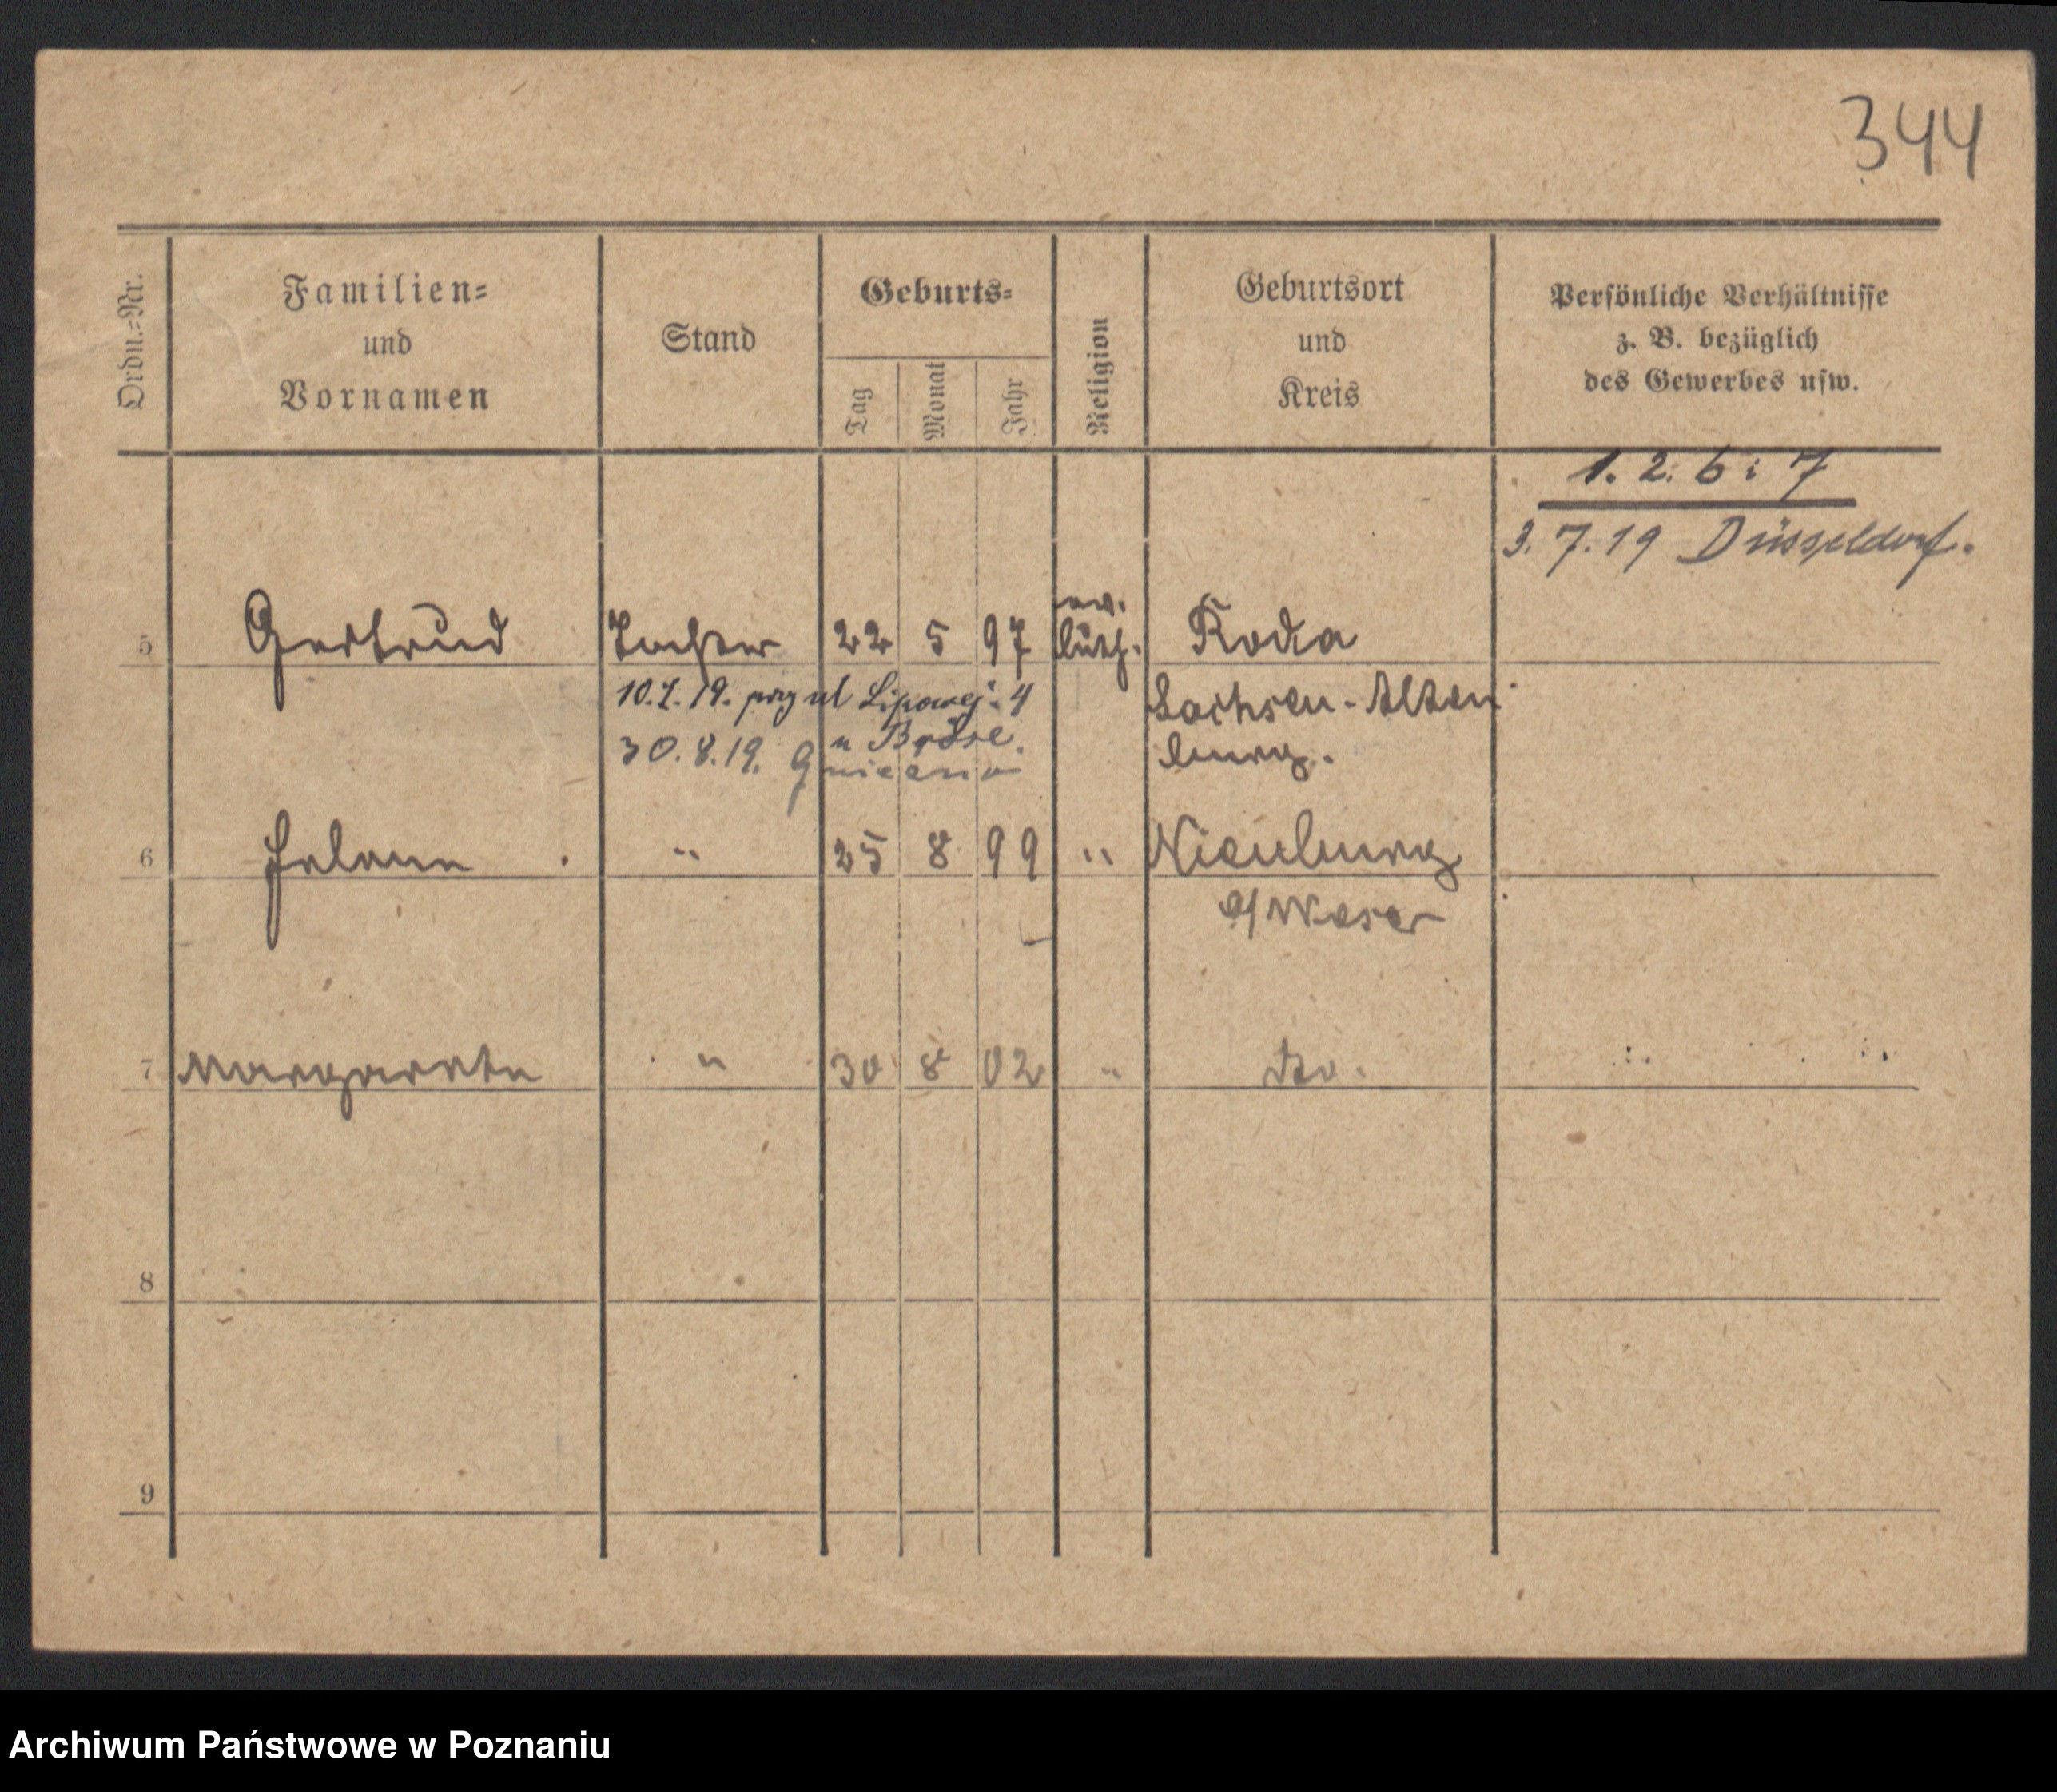 344
Ordn.=Nr.
Familien=
und
Vornamen
Stand
Geburts=
Tag
Monat
Jahr
Religion
Geburtsort
und
Kreis
Persönliche Verhältnisse
z. B. bezüglich
des Gewerbes usw.
1. 2. 6 i 7
3. 7. 19 Düsseldorf.
5 Gertrud Tochter 22 5 97 ev. luth. Roda
Sachsen-Alten
burg.
10.7.19. przy ul Lipowej 4
u Bröse.
30.8.19. Gniezno
6 Helene " 25 8 99 " Nienburg
a/Weser
7 Margarete " 30 8 02 " do.
8
9
Archiwum Państwowe w Poznaniu